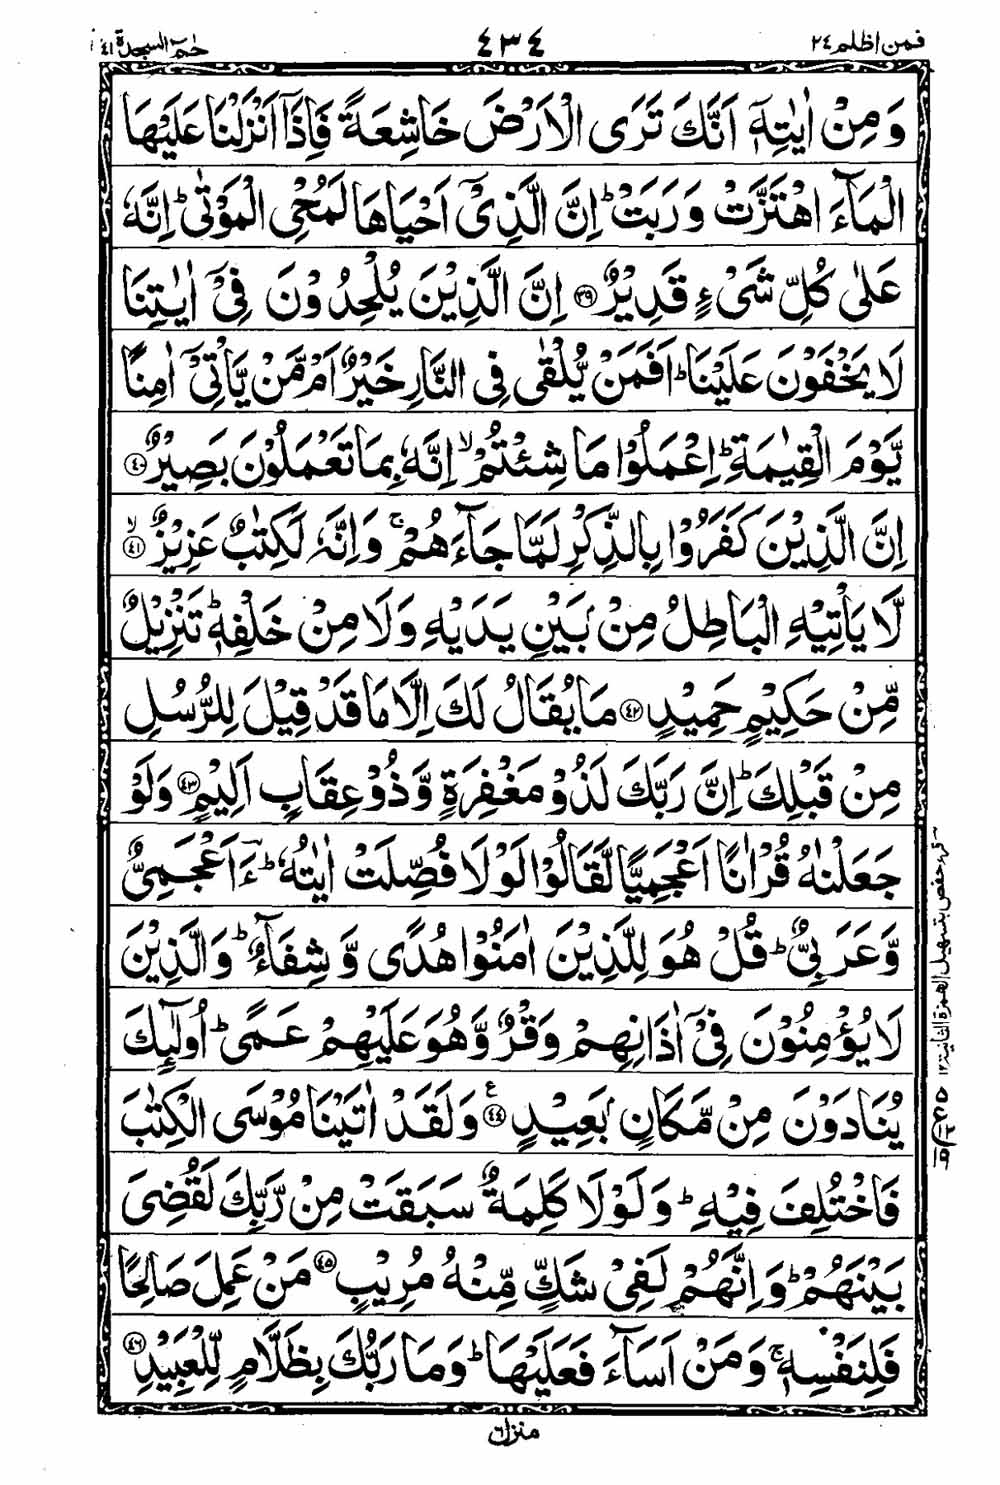 فمن اظلم ٢٤
٤٣٤
حٰمٓ السجدة ٤١
وَمِنْ اٰيٰتِهٖۤ اَنَّكَ تَرَى الْاَرْضَ خَاشِعَةً فَاِذَاۤ اَنْزَلْنَا عَلَيْهَا
الْمَآءَ اهْتَزَّتْ وَرَبَتْ ؕ اِنَّ الَّذِيْۤ اَحْيَاهَا لَمُحْيِ الْمَوْتٰى ؕ اِنَّهٗ
عَلٰى كُلِّ شَيْءٍ قَدِيْرٌ ﴿٣٩﴾ اِنَّ الَّذِيْنَ يُلْحِدُوْنَ فِيْۤ اٰيٰتِنَا
لَا يَخْفَوْنَ عَلَيْنَا ؕ اَفَمَنْ يُّلْقٰى فِي النَّارِ خَيْرٌ اَمْ مَّنْ يَّاْتِيْۤ اٰمِنًا
يَّوْمَ الْقِيٰمَةِ ؕ اِعْمَلُوْا مَا شِئْتُمْ ۙ اِنَّهٗ بِمَا تَعْمَلُوْنَ بَصِيْرٌ ﴿٤٠﴾
اِنَّ الَّذِيْنَ كَفَرُوْا بِالذِّكْرِ لَمَّا جَآءَهُمْ ۚ وَاِنَّهٗ لَكِتٰبٌ عَزِيْزٌ ۙ﴿٤١﴾
لَّا يَاْتِيْهِ الْبَاطِلُ مِنْۢ بَيْنِ يَدَيْهِ وَلَا مِنْ خَلْفِهٖ ؕ تَنْزِيْلٌ
مِّنْ حَكِيْمٍ حَمِيْدٍ ﴿٤٢﴾ مَا يُقَالُ لَكَ اِلَّا مَا قَدْ قِيْلَ لِلرُّسُلِ
مِنْ قَبْلِكَ ؕ اِنَّ رَبَّكَ لَذُوْ مَغْفِرَةٍ وَّذُوْ عِقَابٍ اَلِيْمٍ ﴿٤٣﴾ وَلَوْ
جَعَلْنٰهُ قُرْاٰنًا اَعْجَمِيًّا لَّقَالُوْا لَوْلَا فُصِّلَتْ اٰيٰتُهٗ ؕ ءَاَعْجَمِيٌّ
وَّعَرَبِيٌّ ؕ قُلْ هُوَ لِلَّذِيْنَ اٰمَنُوْا هُدًى وَّشِفَآءٌ ؕ وَالَّذِيْنَ
لَا يُؤْمِنُوْنَ فِيْۤ اٰذَانِهِمْ وَقْرٌ وَّهُوَ عَلَيْهِمْ عَمًى ؕ اُولٰٓئِكَ
يُنَادَوْنَ مِنْ مَّكَانٍۭ بَعِيْدٍ ﴿٤٤﴾ ع وَلَقَدْ اٰتَيْنَا مُوْسَى الْكِتٰبَ
فَاخْتُلِفَ فِيْهِ ؕ وَلَوْلَا كَلِمَةٌ سَبَقَتْ مِنْ رَّبِّكَ لَقُضِيَ
بَيْنَهُمْ ؕ وَاِنَّهُمْ لَفِيْ شَكٍّ مِّنْهُ مُرِيْبٍ ﴿٤٥﴾ مَنْ عَمِلَ صَالِحًا
فَلِنَفْسِهٖ ۚ وَمَنْ اَسَآءَ فَعَلَيْهَا ؕ وَمَا رَبُّكَ بِظَلَّامٍ لِّلْعَبِيْدِ ﴿٤٦﴾
حفص بتسهيل الهمزة الثانية ١٢
منزل ٦